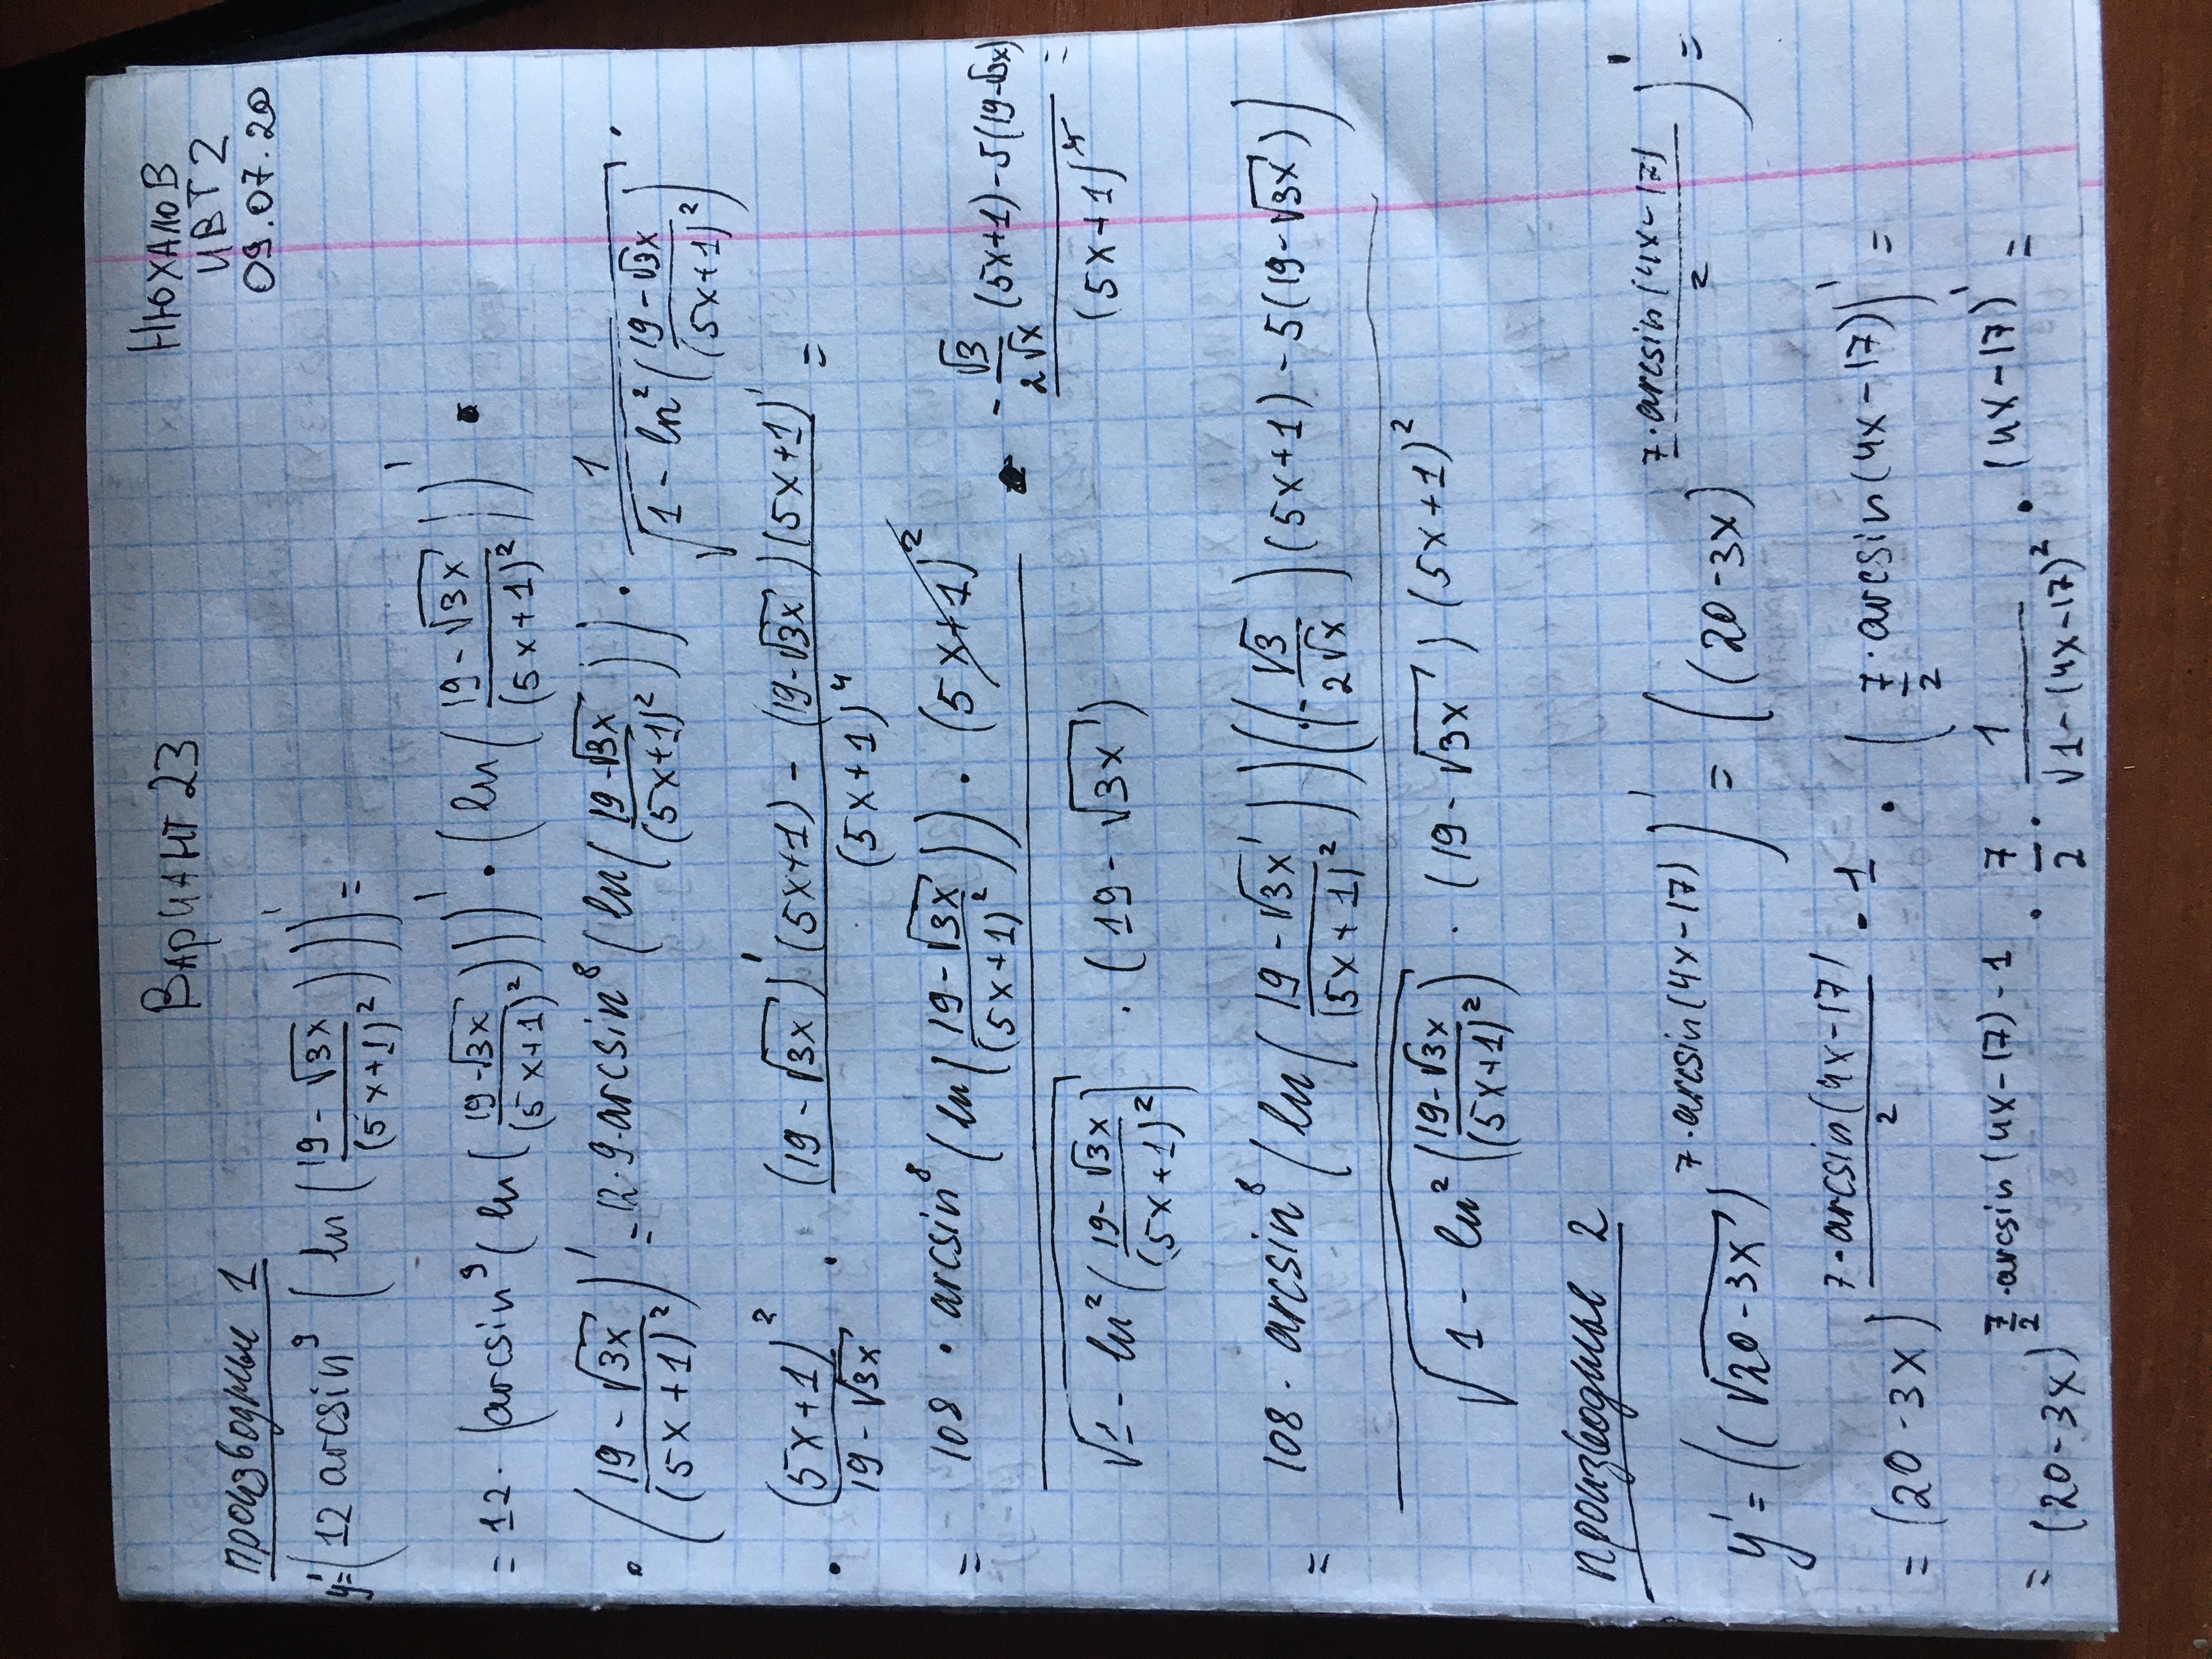 Вариант 23
Нюхалов
ИВТ 2
09.07.20
производные 1
y' = (12 arcsin⁹ (ln((19 - √3x)/(5x+1)²)))' =
= 12 · (arcsin⁹(ln((19-√3x)/(5x+1)²)))' · (ln((19-√3x)/(5x+1)²))' ·
· ((19-√3x)/(5x+1)²)' = 12·9·arcsin⁸(ln((19-√3x)/(5x+1)²)) · 1/√(1 - ln²((19-√3x)/(5x+1)²)) ·
· (5x+1)²/(19-√3x) · ((19-√3x)'(5x+1) - (19-√3x)(5x+1)')/(5x+1)⁴ =
= (108 · arcsin⁸(ln((19-√3x)/(5x+1)²)) · (5x+1)²)/(√(1 - ln²((19-√3x)/(5x+1)²)) · (19-√3x)) · (-√3/(2√x) (5x+1) - 5(19-√3x))/(5x+1)⁴ =
= (108 · arcsin⁸(ln((19-√3x)/(5x+1)²))((-√3/(2√x))(5x+1) - 5(19-√3x)))/(√(1 - ln²((19-√3x)/(5x+1)²)) · (19-√3x)(5x+1)²)
производные 2
y' = ((√(20-3x))^(7·arcsin(4x-17)))' = ((20-3x)^(7·arcsin(4x-17)/2))' =
= (20-3x)^(7·arcsin(4x-17)/2) · 1 · (7/2 · arcsin(4x-17))' =
= (20-3x)^(7/2·arcsin(4x-17)-1) · 7/2 · 1/√(1-(4x-17)²) · (4x-17)' =